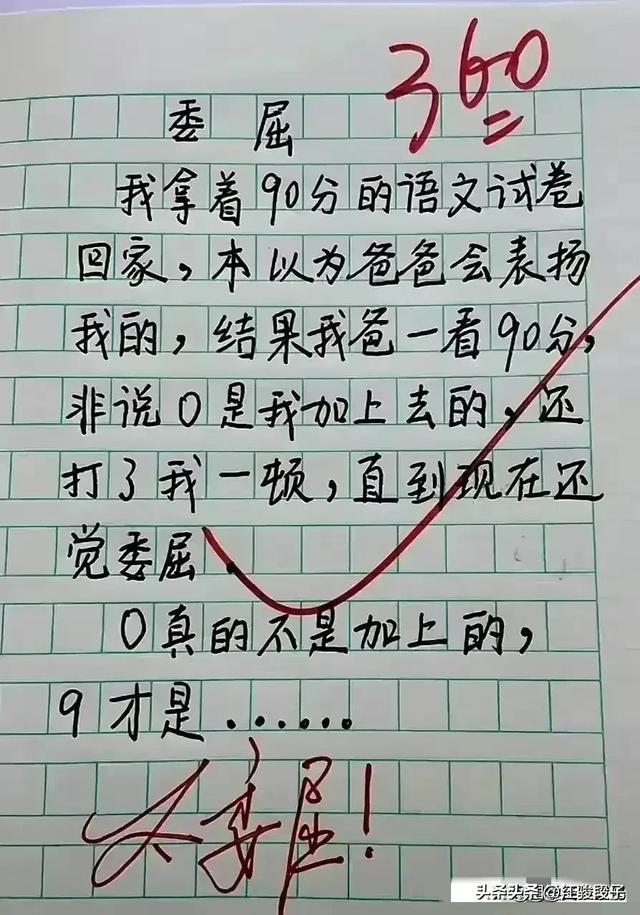 360
委屈
我拿着90分的语文试卷
回家，本以为爸爸会表扬
我的，结果我爸一看90分，
非说0是我加上去的，还
打了我一顿，直到现在还
觉委屈.
0真的不是加上的，
9才是......
太委屈！
头条 @红骏段子